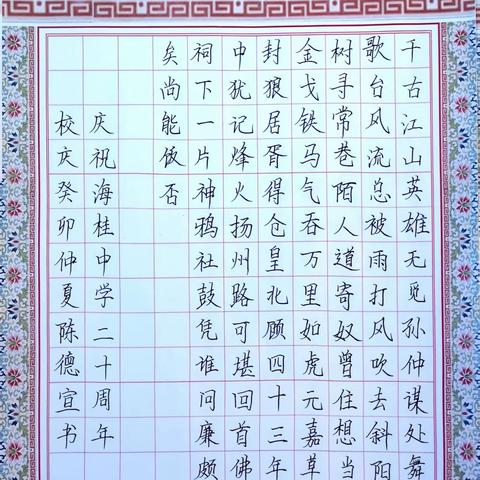 千古江山英雄无觅孙仲谋处舞
歌台风流总被雨打风吹去斜阳
树寻常巷陌人道寄奴曾住想当
金戈铁马气吞万里如虎元嘉草
封狼居胥得仓皇北顾四十三年
中犹记烽火扬州路可堪回首佛
祠下一片神鸦社鼓凭谁问廉颇
矣尚能饭否
庆祝海桂中学二十周年
校庆癸卯仲夏陈德宣书